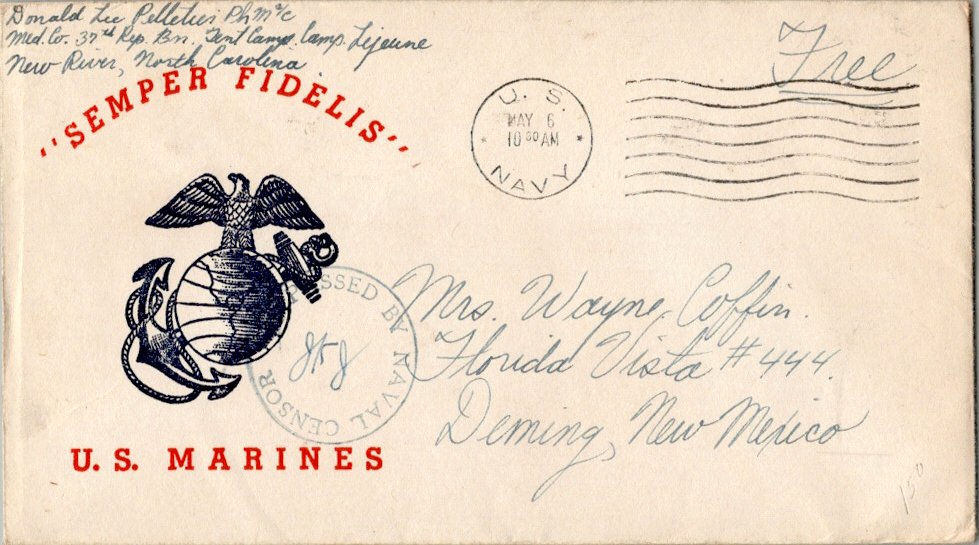 Donald Lee Pelletier PhM 2/c
Med. Co. 37th Rep. Bn. Tent Camp. Camp. Lejeune
New River, North Carolina
"SEMPER FIDELIS"
U. S.
MAY 6
10 30 AM
NAVY
Free
PASSED BY NAVAL CENSOR
Mrs. Wayne Coffin.
Florida Vista #444.
Deming, New Mexico
U. S. MARINES
150